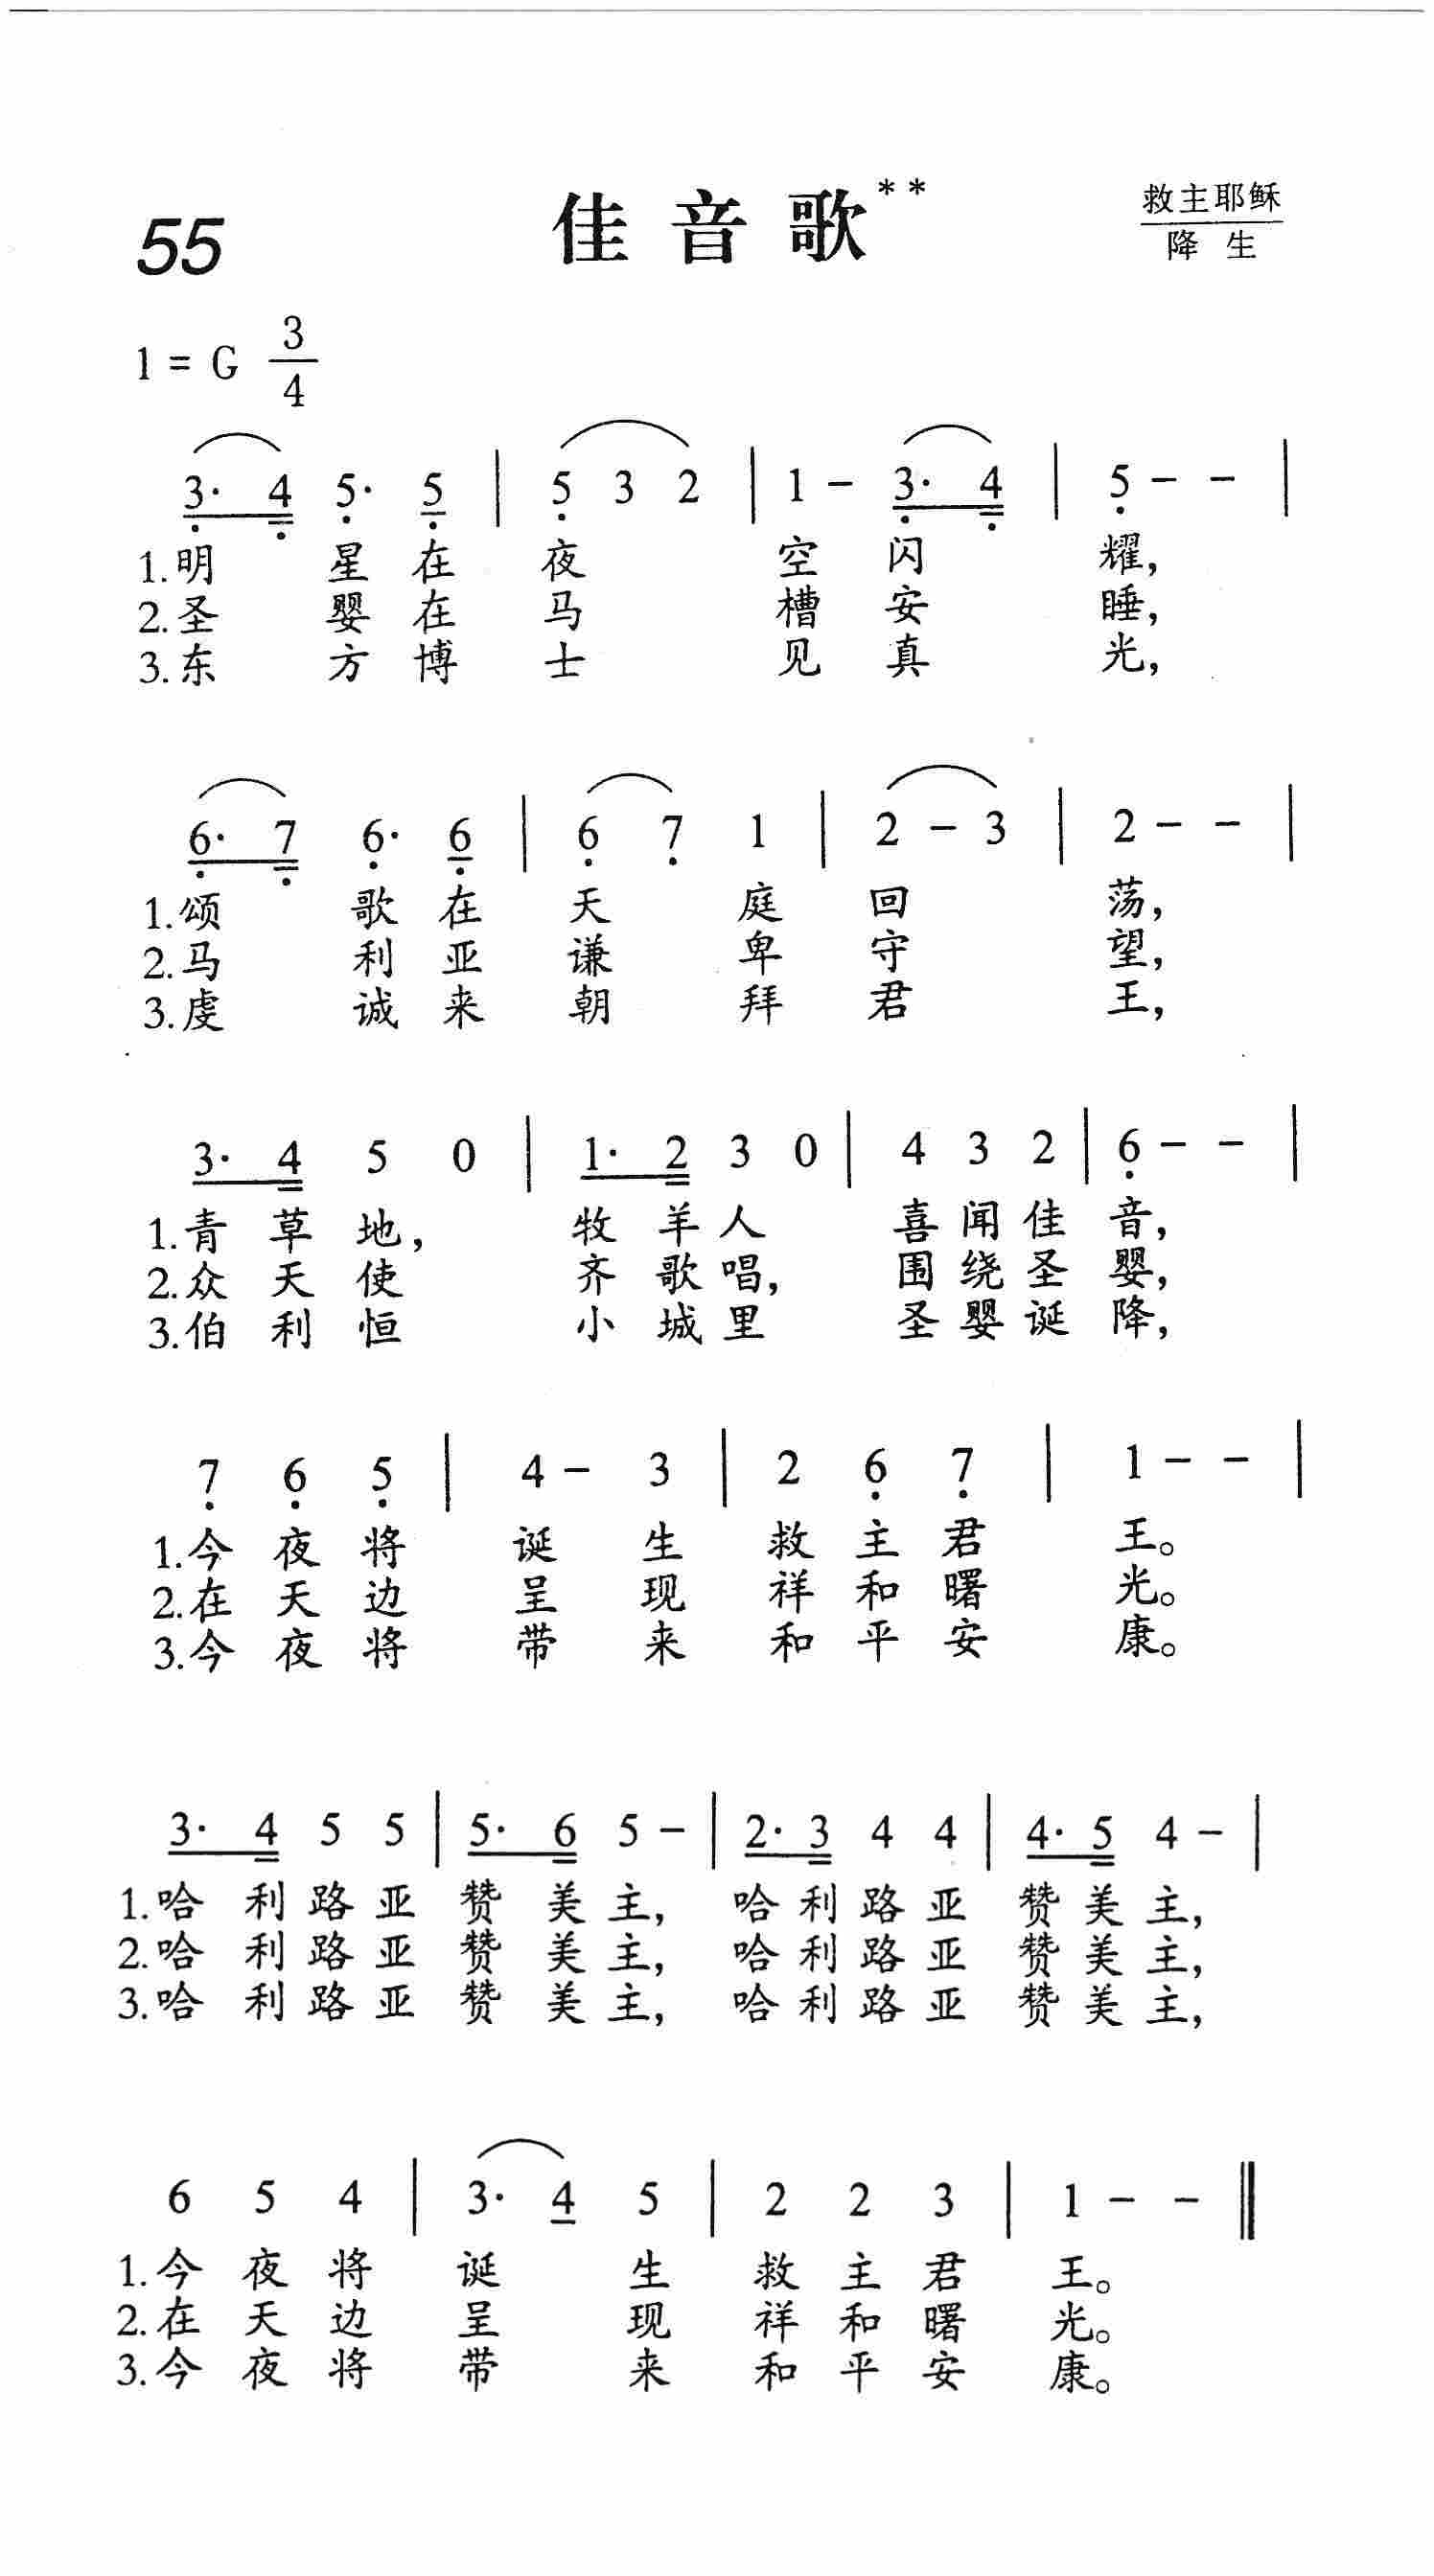 55
佳音歌**
救主耶稣
降生
1 = G 3/4
3· 4 5· 5 | 5 3 2 | 1 - 3· 4 | 5 - - |
1.明 星 在 夜 空 闪 耀,
2.圣 婴 在 马 槽 安 睡,
3.东 方 博 士 见 真 光,
6· 7 6· 6 | 6 7 1 | 2 - 3 | 2 - - |
1.颂 歌 在 天 庭 回 荡,
2.马 利 亚 谦 卑 守 望,
3.虔 诚 来 朝 拜 君 王,
3· 4 5 0 | 1· 2 3 0 | 4 3 2 | 6 - - |
1.青 草 地, 牧 羊 人 喜 闻 佳 音,
2.众 天 使 齐 歌 唱, 围 绕 圣 婴,
3.伯 利 恒 小 城 里 圣 婴 诞 降,
7 6 5 | 4 - 3 | 2 6 7 | 1 - - |
1.今 夜 将 诞 生 救 主 君 王。
2.在 天 边 呈 现 祥 和 曙 光。
3.今 夜 将 带 来 和 平 安 康。
3· 4 5 5 | 5· 6 5 - | 2· 3 4 4 | 4· 5 4 - |
1.哈 利 路 亚 赞 美 主, 哈 利 路 亚 赞 美 主,
2.哈 利 路 亚 赞 美 主, 哈 利 路 亚 赞 美 主,
3.哈 利 路 亚 赞 美 主, 哈 利 路 亚 赞 美 主,
6 5 4 | 3· 4 5 | 2 2 3 | 1 - - ‖
1.今 夜 将 诞 生 救 主 君 王。
2.在 天 边 呈 现 祥 和 曙 光。
3.今 夜 将 带 来 和 平 安 康。